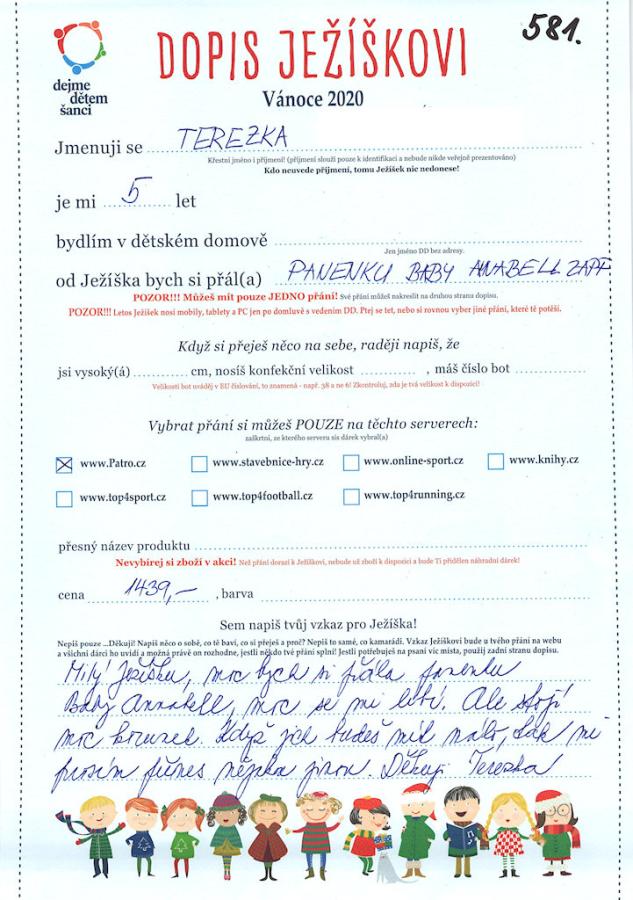 581.
dejme
dětem
šanci
DOPIS JEŽÍŠKOVI
Vánoce 2020
Jmenuji se TEREZKA
Křestní jméno i příjmení! (příjmení slouží pouze k identifikaci a nebude nikde veřejně prezentováno)
Kdo neuvede příjmení, tomu Ježíšek nic nedonese!
je mi 5 let
bydlím v dětském domově
Jen jméno DD bez adresy.
od Ježíška bych si přál(a) PANENKU BABY ANABELL ZAPF
POZOR!!! Můžeš mít pouze JEDNO přání! Své přání můžeš nakreslit na druhou stranu dopisu.
POZOR!!! Letos Ježíšek nosí mobily, tablety a PC jen po domluvě s vedením DD. Ptej se tet, nebo si rovnou vyber jiné přání, které tě potěší.
Když si přeješ něco na sebe, raději napiš, že
jsi vysoký(á) cm, nosíš konfekční velikost , máš číslo bot
Velikosti bot uváděj v EU číslování, to znamená - např. 38 a ne 6! Zkontroluj, zda je tvá velikost k dispozici!
Vybrat přání si můžeš POUZE na těchto serverech:
zaškrtni, ze kterého serveru sis dárek vybral(a)
www.Patro.cz www.stavebnice-hry.cz www.online-sport.cz www.knihy.cz
www.top4sport.cz www.top4football.cz www.top4running.cz
přesný název produktu
Nevybírej si zboží v akci! Než přání dorazí k Ježíškovi, nebude už zboží k dispozici a bude Ti přidělen náhradní dárek!
cena 1439,- , barva
Sem napiš tvůj vzkaz pro Ježíška!
Nepiš pouze ...Děkuji! Napiš něco o sobě, co tě baví, co si přeješ a proč? Nepiš to samé, co kamarádi. Vzkaz Ježíškovi bude u tvého přání na webu
a všichni dárci ho uvidí a možná právě on rozhodne, jestli někdo tvé přání splní! Jestli potřebuješ na psaní víc místa, použij zadní stranu dopisu.
Milý Ježíšku, moc bych si přála panenku
Baby Annabell, moc se mi líbí. Ale stojí
moc korunek. Když jich budeš mít málo, tak mi
prosím přines nějakou jinou. Děkuji Terezka